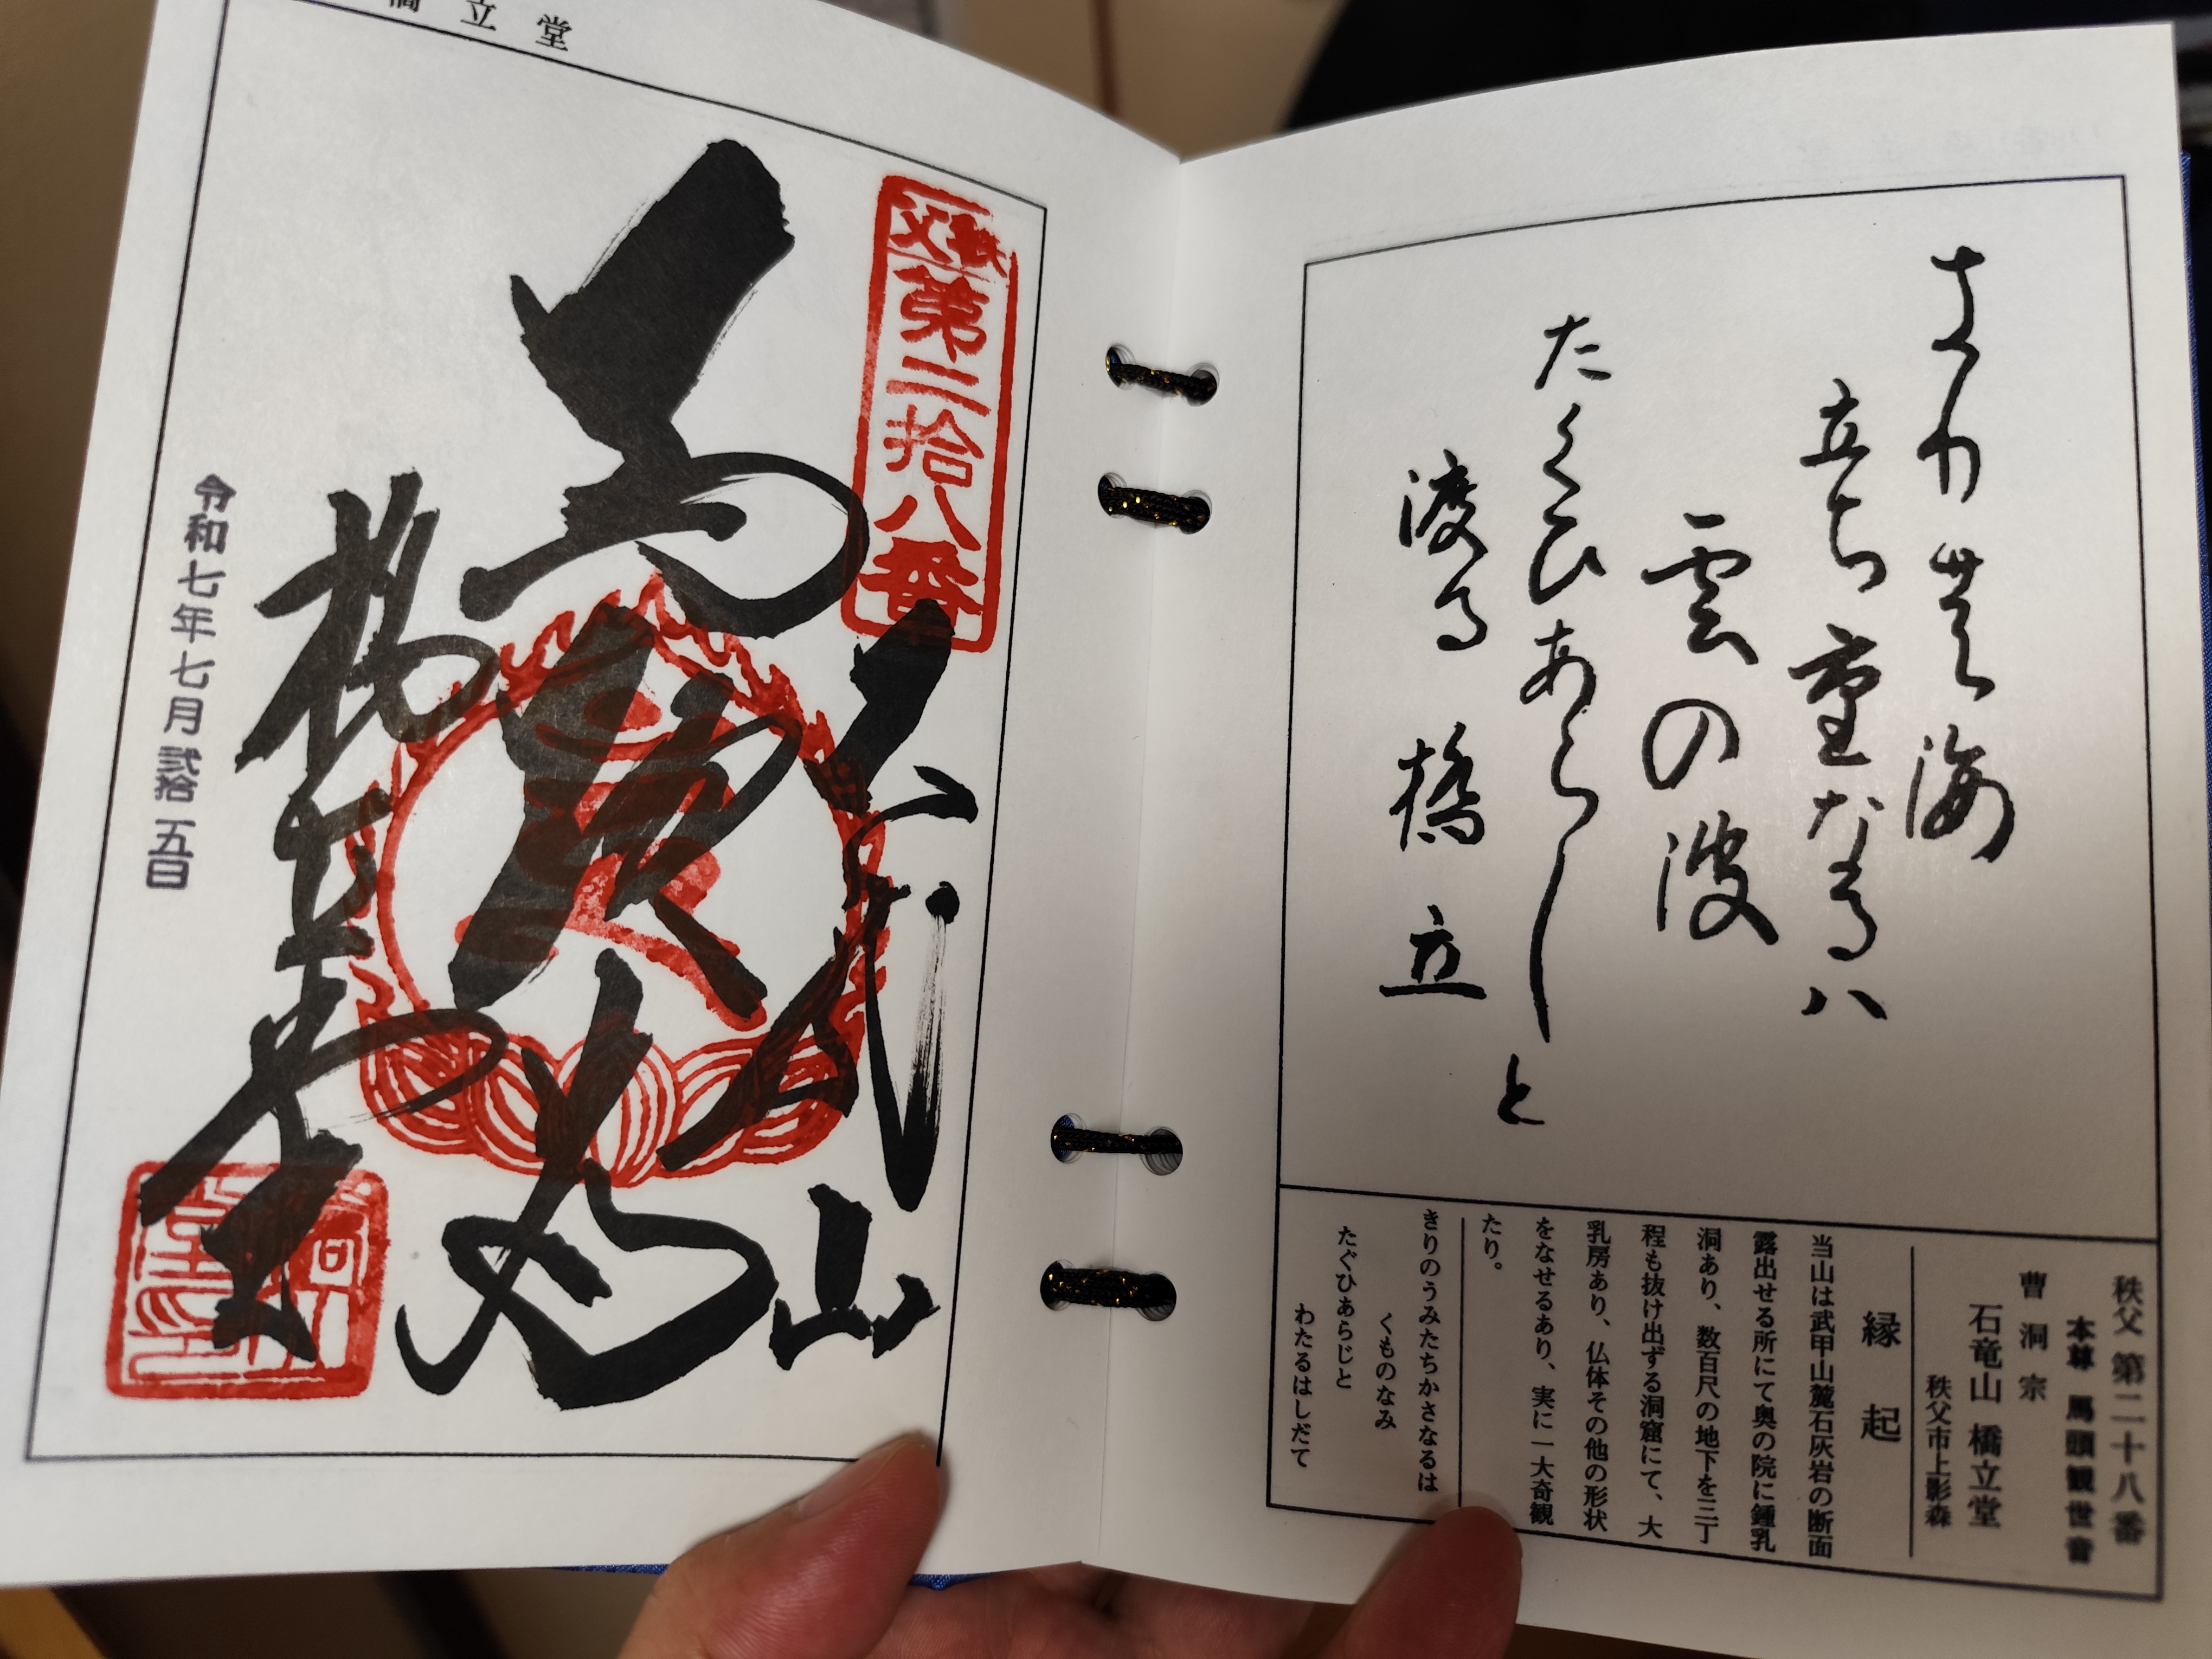 きりの海
立ち重なるハ
雲の波
たくひあらしと
渡る橋立
秩父第二十八番
本尊 馬頭観世音
曹洞宗
石竜山 橋立堂
秩父市上影森
縁起
当山は武甲山麓石灰岩の断面
露出せる所にて奥の院に鍾乳
洞あり、数百尺の地下を三丁
程も抜け出ずる洞窟にて、大
乳房あり、仏体その他の形状
をなせるあり、実に一大奇観
たり。
きりのうみたちかさなるは
くものなみ
たぐひあらじと
わたるはしだて
橋立堂
秩父
第二拾八番
山
馬
橋立堂
令和七年七月弐拾五日